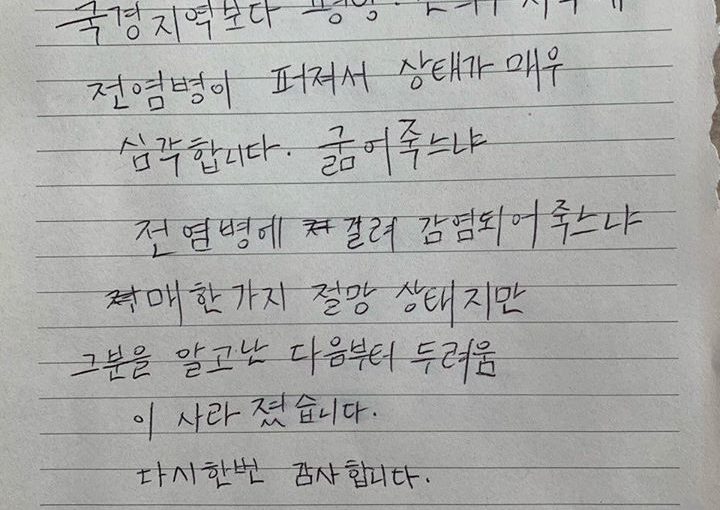 국경지역보다 평양·
전염병이 퍼져서 상태가 매우
심각합니다. 굶어죽느냐
전염병에 걸려 감염되어죽느냐
매한가지 절망 상태지만
그분을 알고난 다음부터 두려움
이 사라졌습니다.
다시한번 감사합니다.